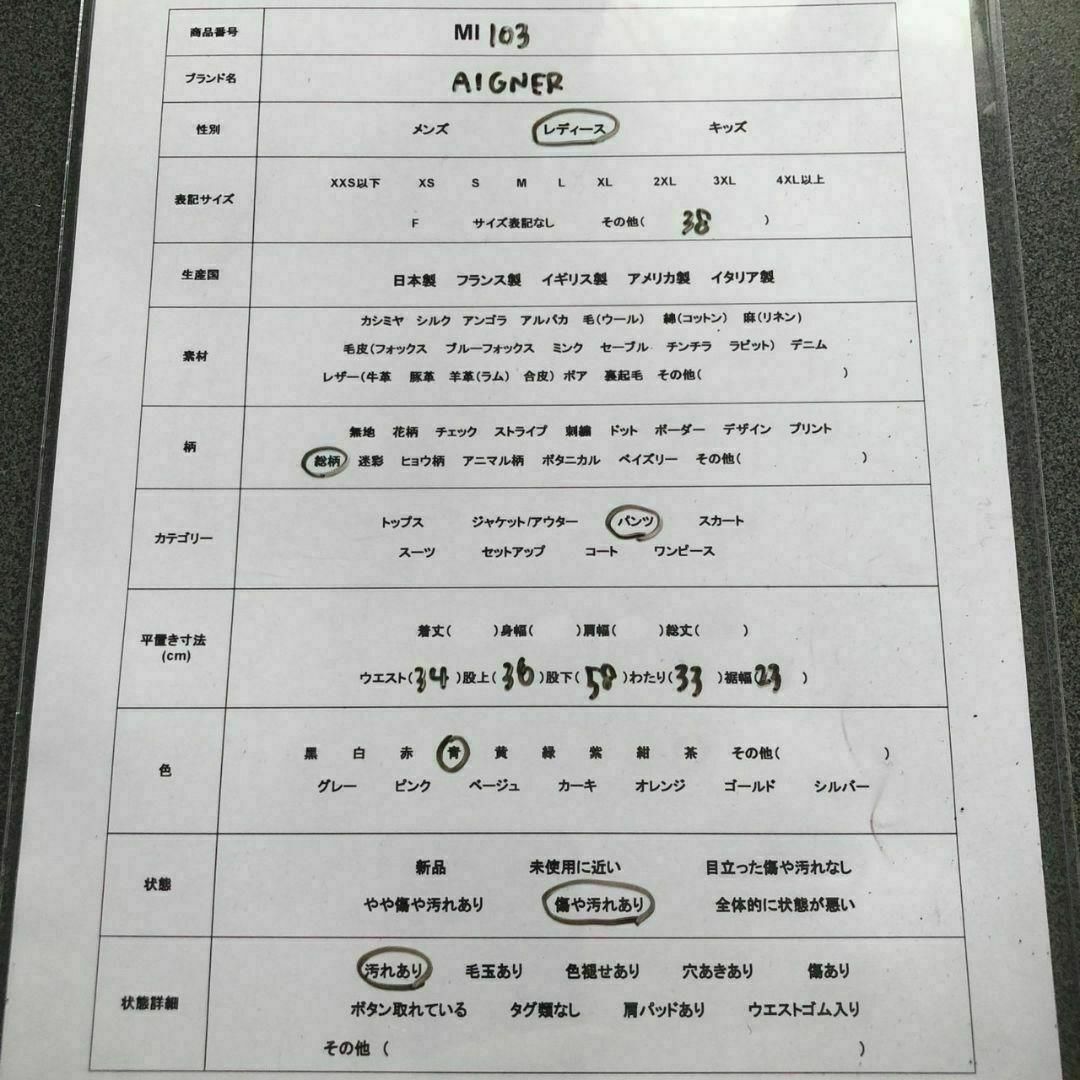 商品番号 MI 103
ブランド名 AIGNER
性別 メンズ レディース キッズ
表記サイズ
XXS以下 XS S M L XL 2XL 3XL 4XL以上
F サイズ表記なし その他( 38 )
生産国 日本製 フランス製 イギリス製 アメリカ製 イタリア製
素材
カシミヤ シルク アンゴラ アルパカ 毛(ウール) 綿(コットン) 麻(リネン)
毛皮(フォックス ブルーフォックス ミンク セーブル チンチラ ラビット) デニム
レザー(牛革 豚革 羊革(ラム) 合皮) ボア 裏起毛 その他( )
柄
無地 花柄 チェック ストライプ 刺繍 ドット ボーダー デザイン プリント
総柄 迷彩 ヒョウ柄 アニマル柄 ボタニカル ペイズリー その他( )
カテゴリー
トップス ジャケット/アウター パンツ スカート
スーツ セットアップ コート ワンピース
平置き寸法
(cm)
着丈( )身幅( )肩幅( )総丈( )
ウエスト(34)股上(36)股下(58)わたり(33)裾幅(23)
色
黒 白 赤 青 黄 緑 紫 紺 茶 その他( )
グレー ピンク ベージュ カーキ オレンジ ゴールド シルバー
状態
新品 未使用に近い 目立った傷や汚れなし
やや傷や汚れあり 傷や汚れあり 全体的に状態が悪い
状態詳細
汚れあり 毛玉あり 色褪せあり 穴あきあり 傷あり
ボタン取れている タグ類なし 肩パッドあり ウエストゴム入り
その他 ( )